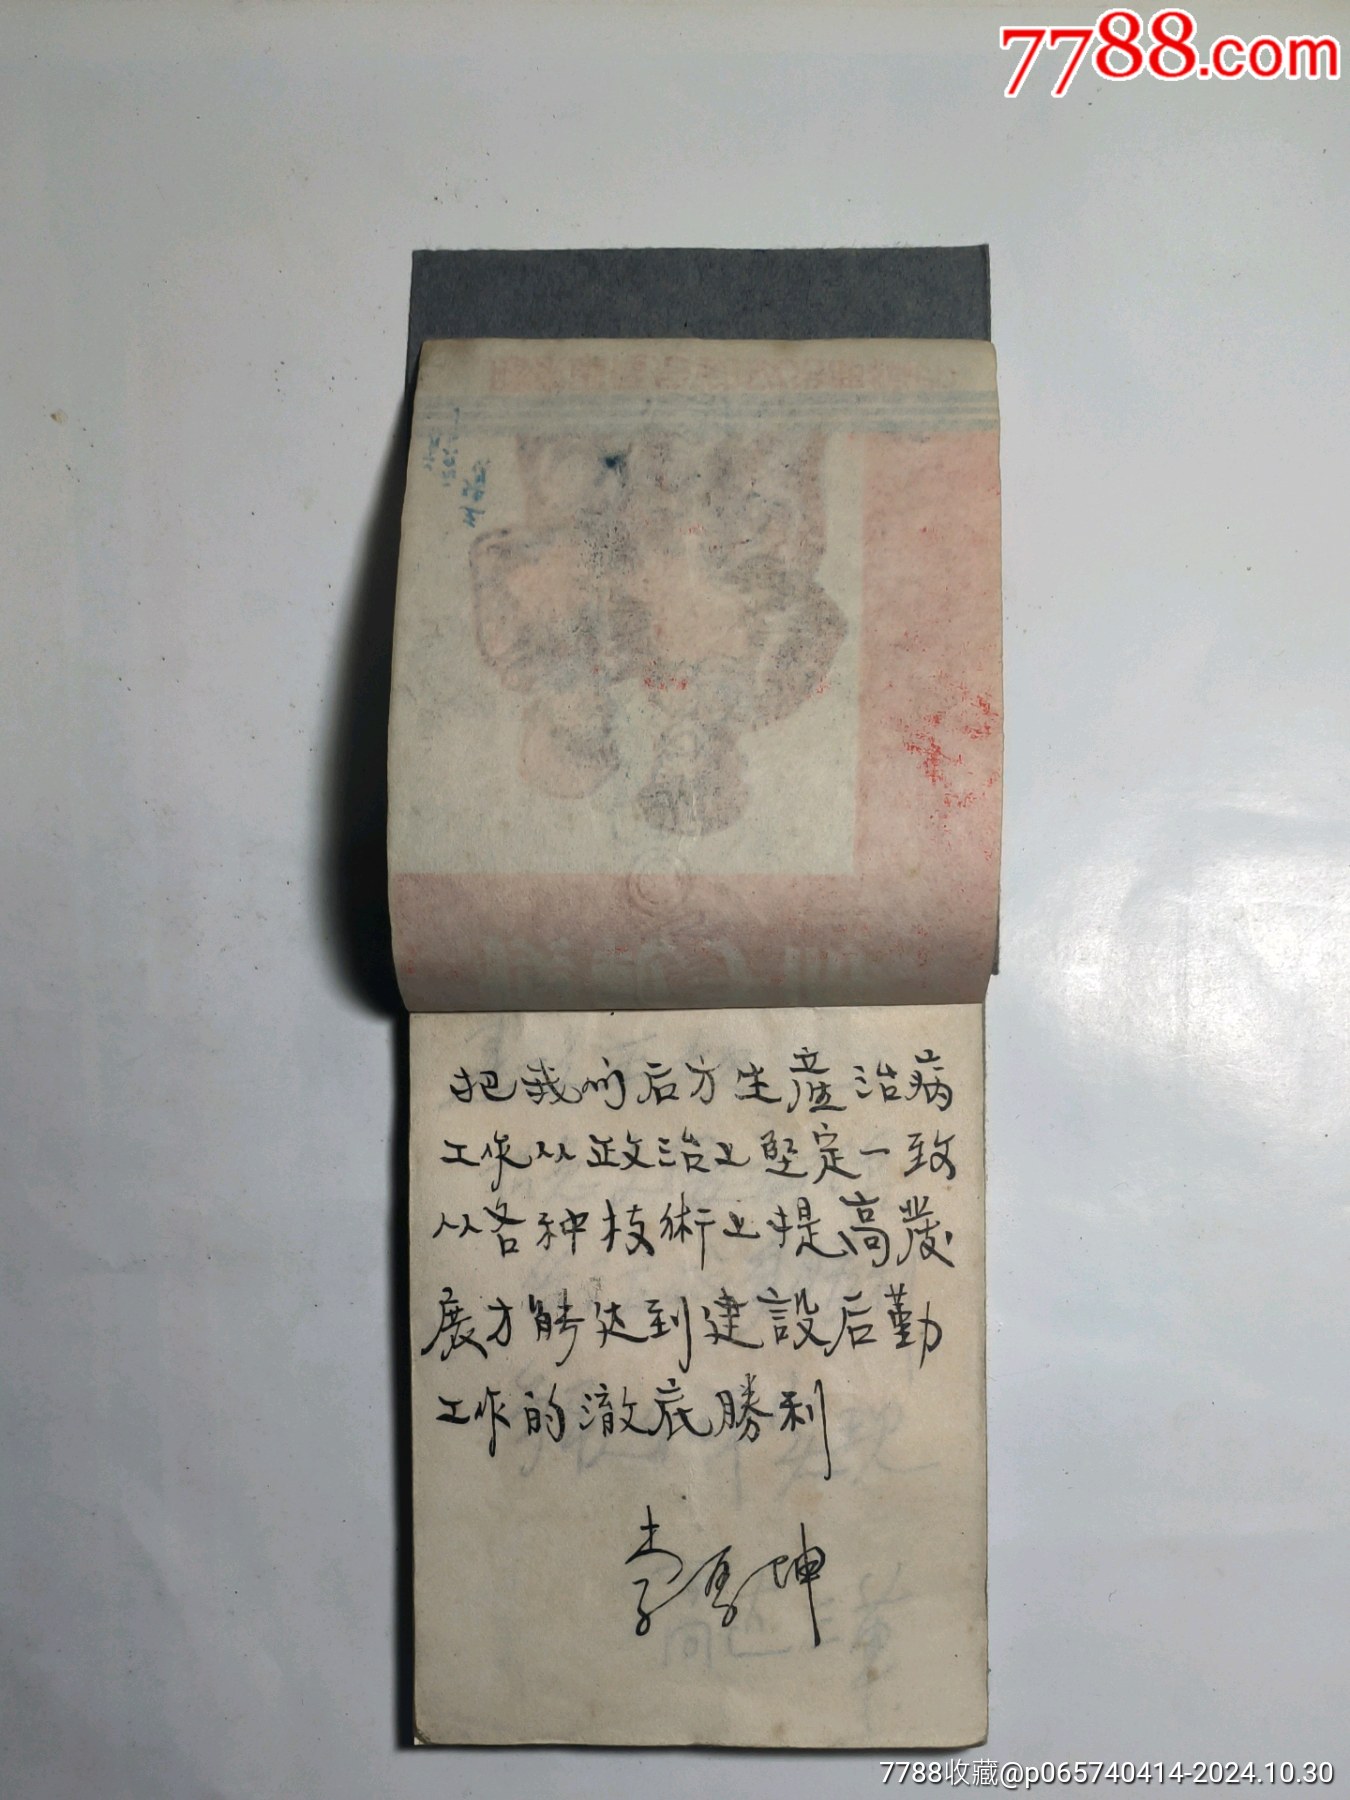 7788.com
把我们后方生產治病
工作从政治上坚定一致
从各种技術上提高發
展才能达到建設后勤
工作的澈底勝利
李厚坤
7788收藏@p065740414-2024.10.30